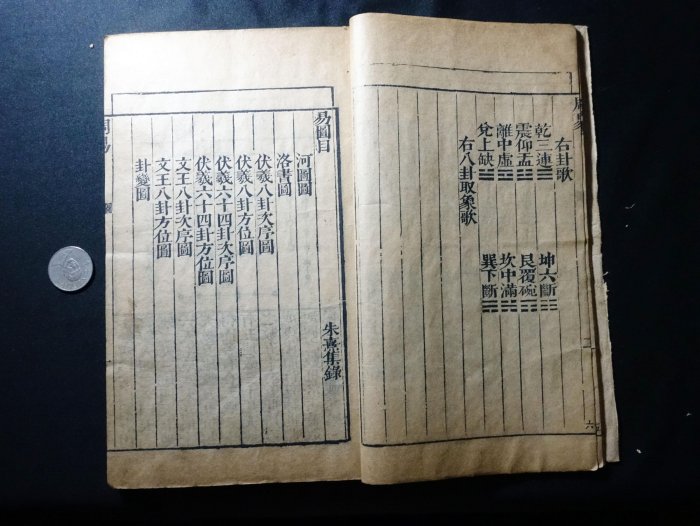 右卦歌
乾三連☰ 坤六斷☷
震仰盂☳ 艮覆碗☶
離中虛☲ 坎中滿☵
兌上缺☱ 巽下斷☴
右八卦取象歌
六
易圖目 朱熹集錄
河圖圖
洛書圖
伏羲八卦次序圖
伏羲八卦方位圖
伏羲六十四卦次序圖
伏羲六十四卦方位圖
文王八卦次序圖
文王八卦方位圖
卦變圖